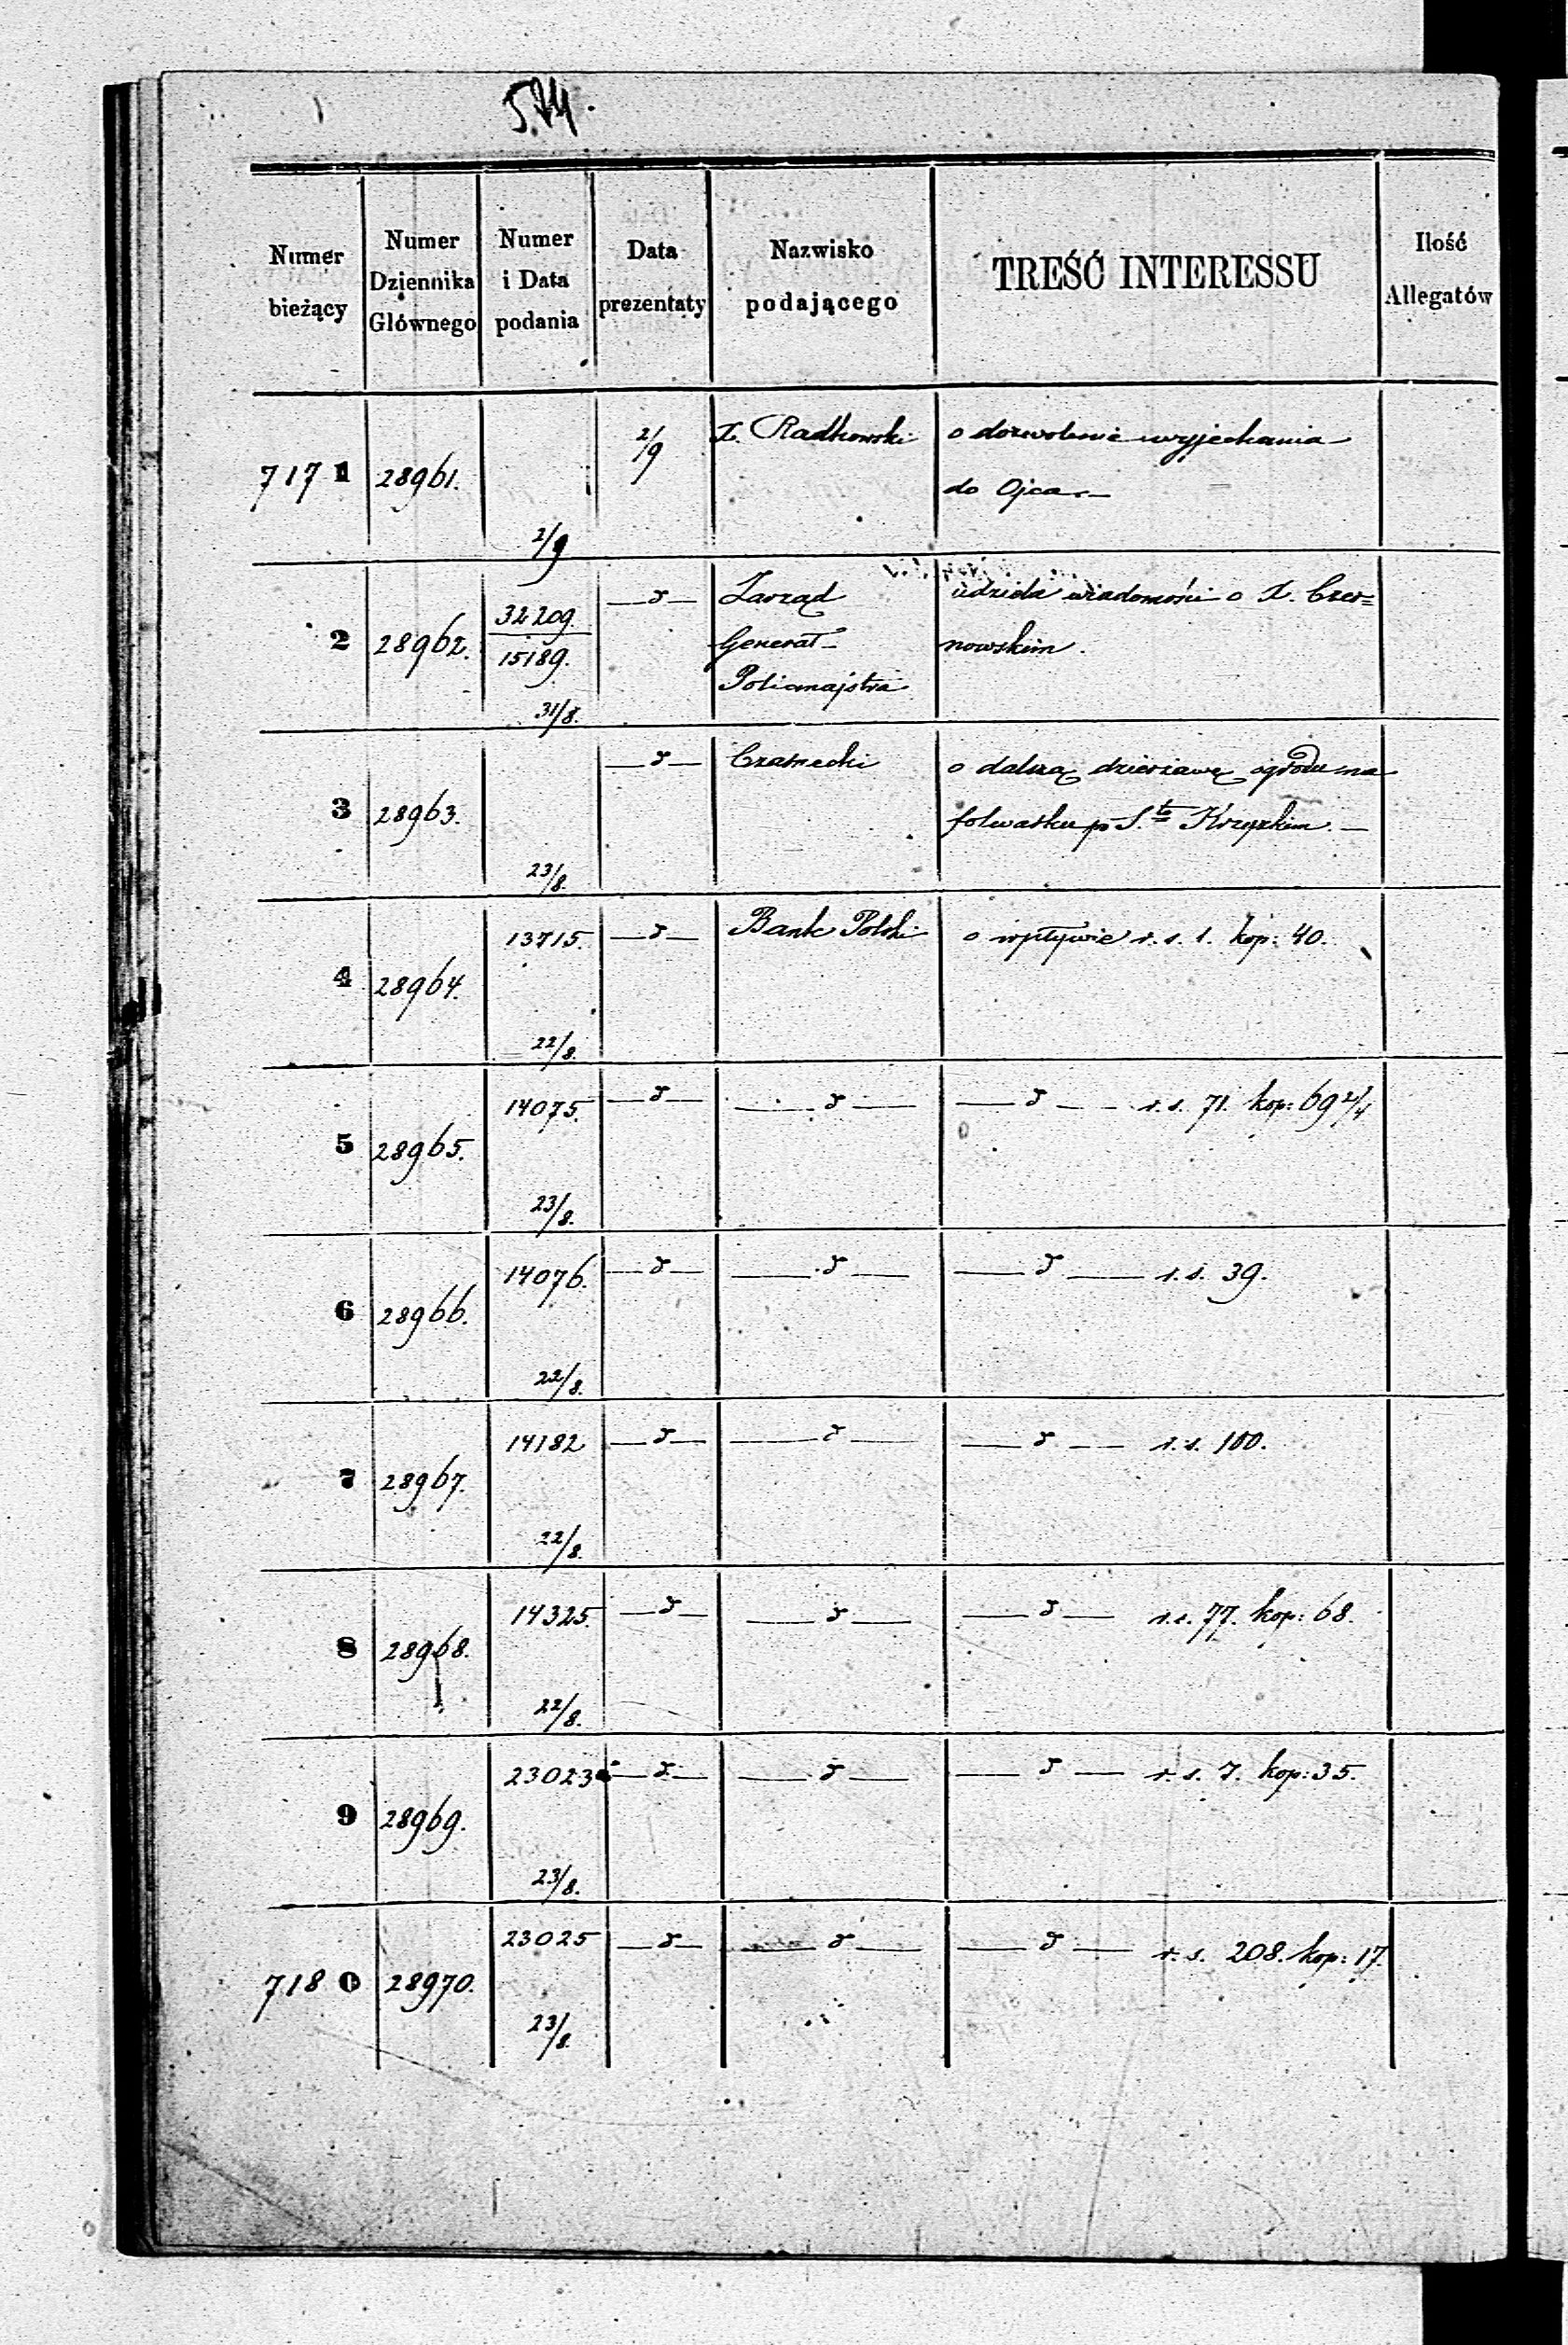 574.
Numer bieżący
Numer Dziennika Głównego
Numer i Data podania
Data prezentaty
Nazwisko podającego
TREŚĆ INTERESSU
Ilość Allegatów
7171 28961. 2/9 2/9 X. Radkowski o dozwolenie wyjechania
do Ojca.—
2 28962. 32209. — d — Zarząd udziela wiadomości o X. Czer=
15189. Generał- nowskim.
31/8. Policmajstra
3 28963. — d — Czarnecki o dalszą dzierżawę ogrodu na
folwarku po S.to Krzyzkim. —
23/8.
4 28964. 13715. — d — Bank Polski o wpływie r. s. 1. kop: 40.
22/8.
5 28965. 14075. — d — — d — — d — r. s. 71. kop: 69 2/4
23/8.
6 28966. 14076. — d — — d — — d — r. s. 39.
22/8.
7 28967. 14182 — d — — d — — d — r. s. 100.
22/8.
8 28968. 14325. — d — — d — — d — r. s. 77. kop: 68.
22/8.
9 28969. 23023 — d — — d — — d — r. s. 7. kop: 35.
23/8.
7180 28970. 23025 — d — — d — — d — r. s. 208. kop: 17.
23/8.